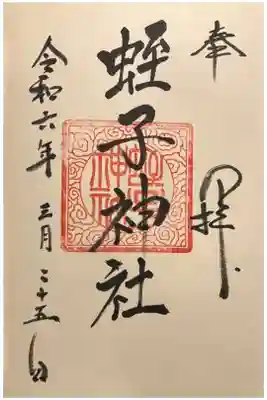 奉拝
蛭子神社
令和六年三月二十五日
蛭子神社